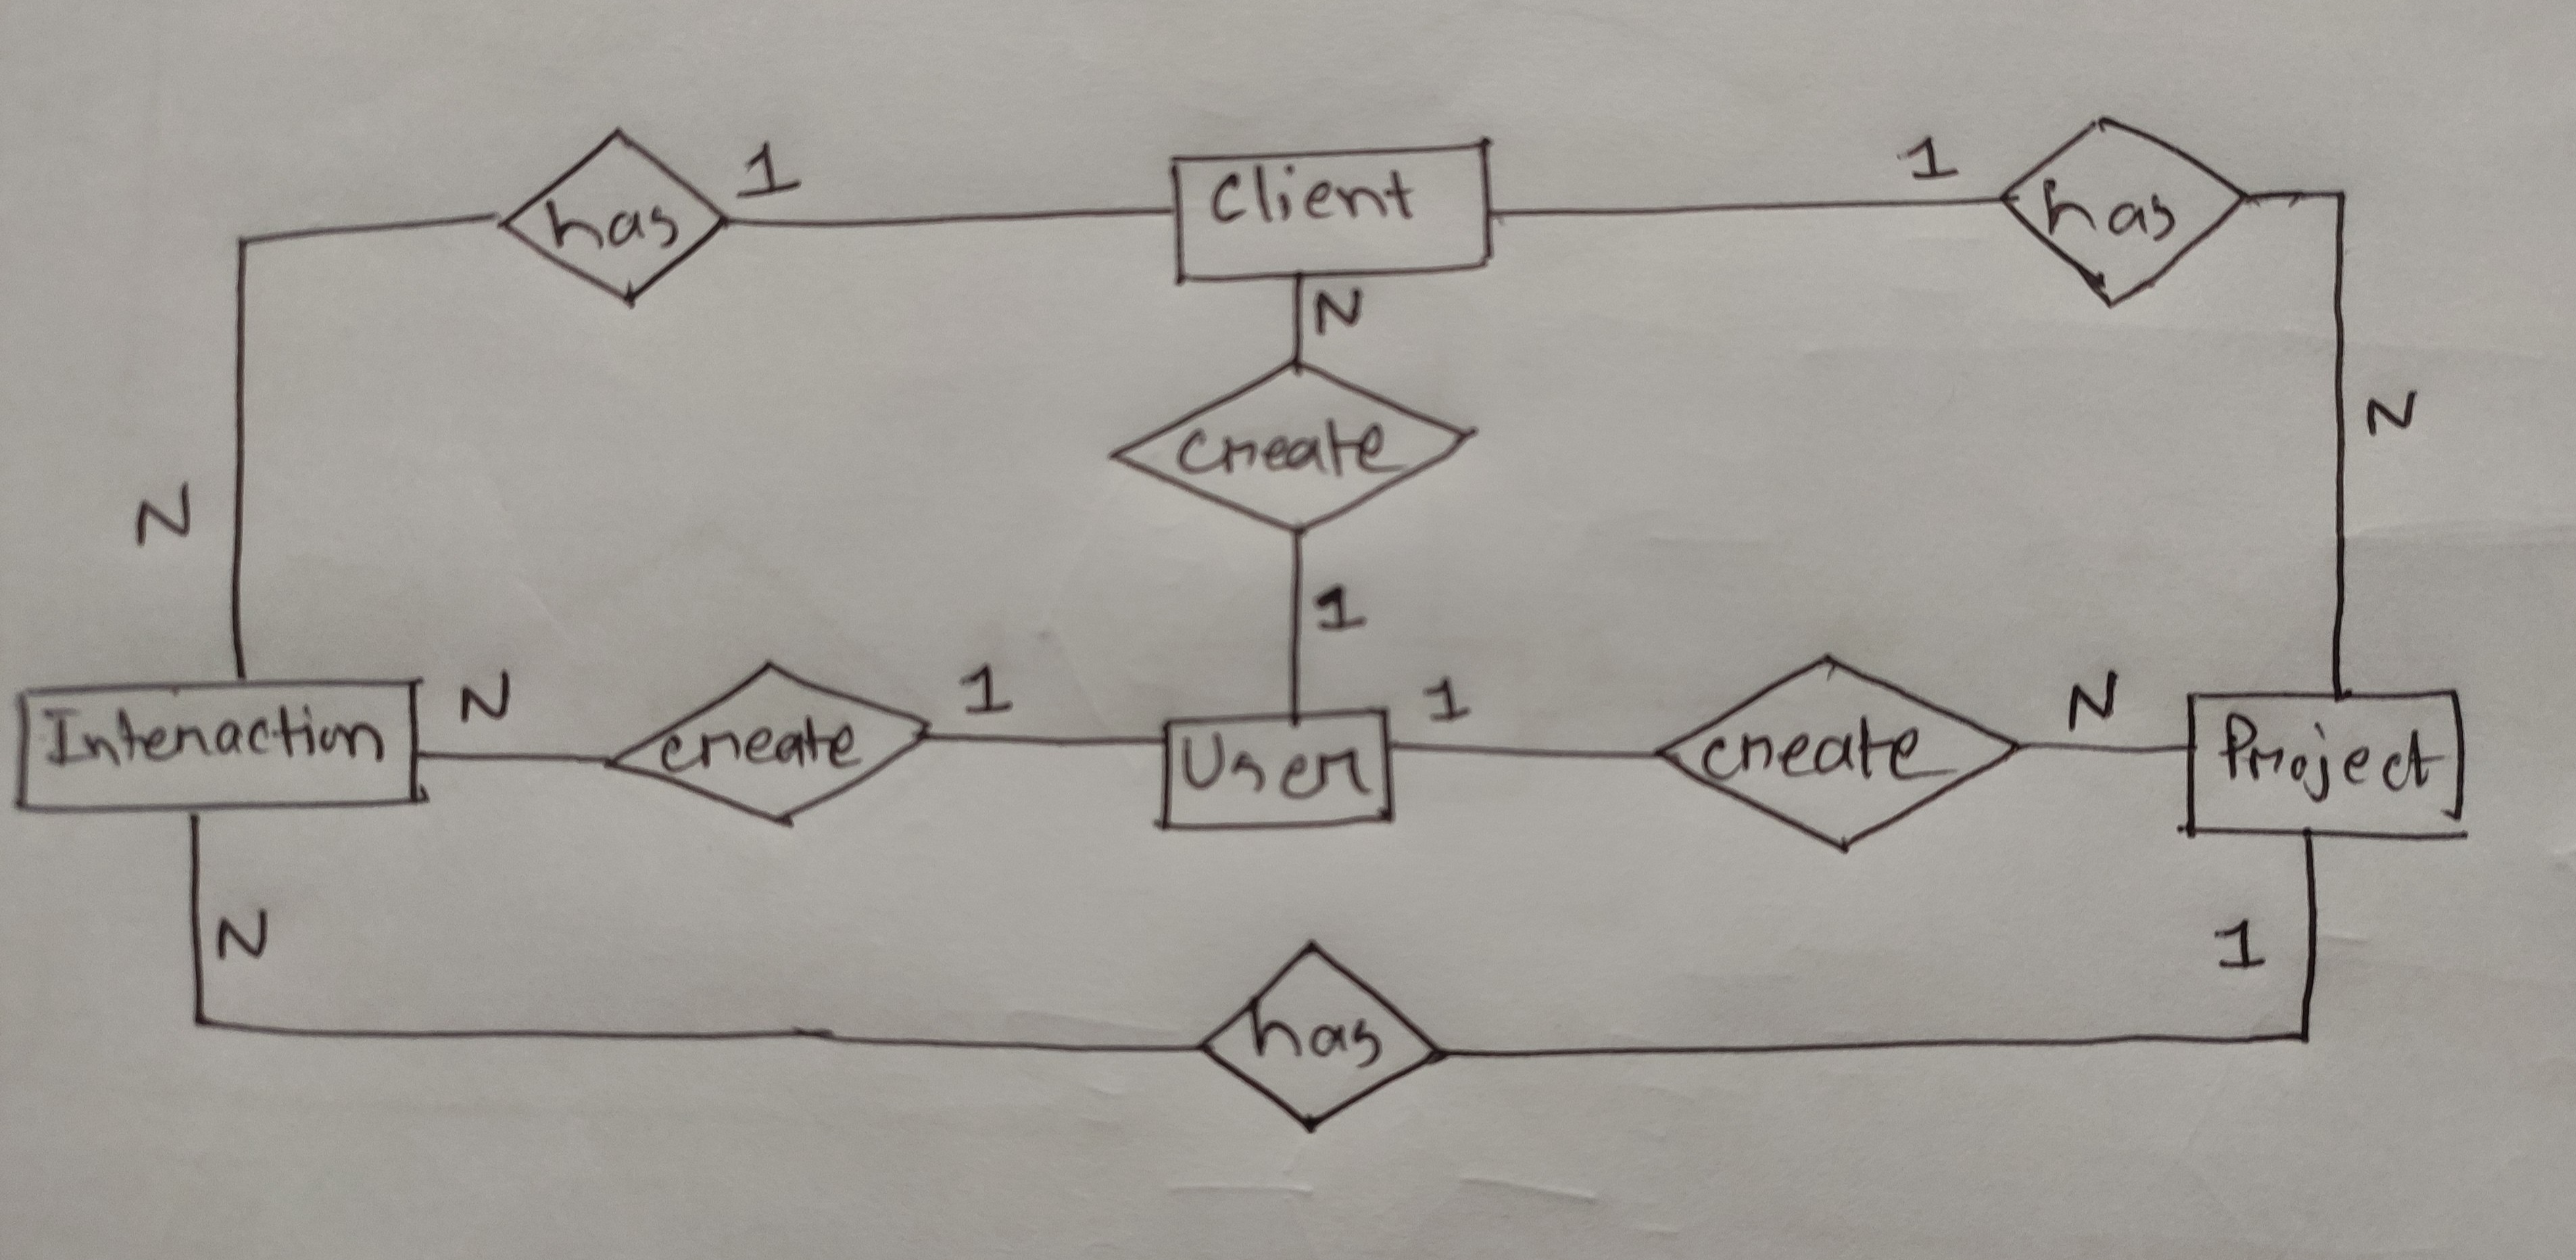 has
1
Client
1
has
N
N
create
N
1
Interaction
N
create
1
User
1
create
N
Project
N
1
has